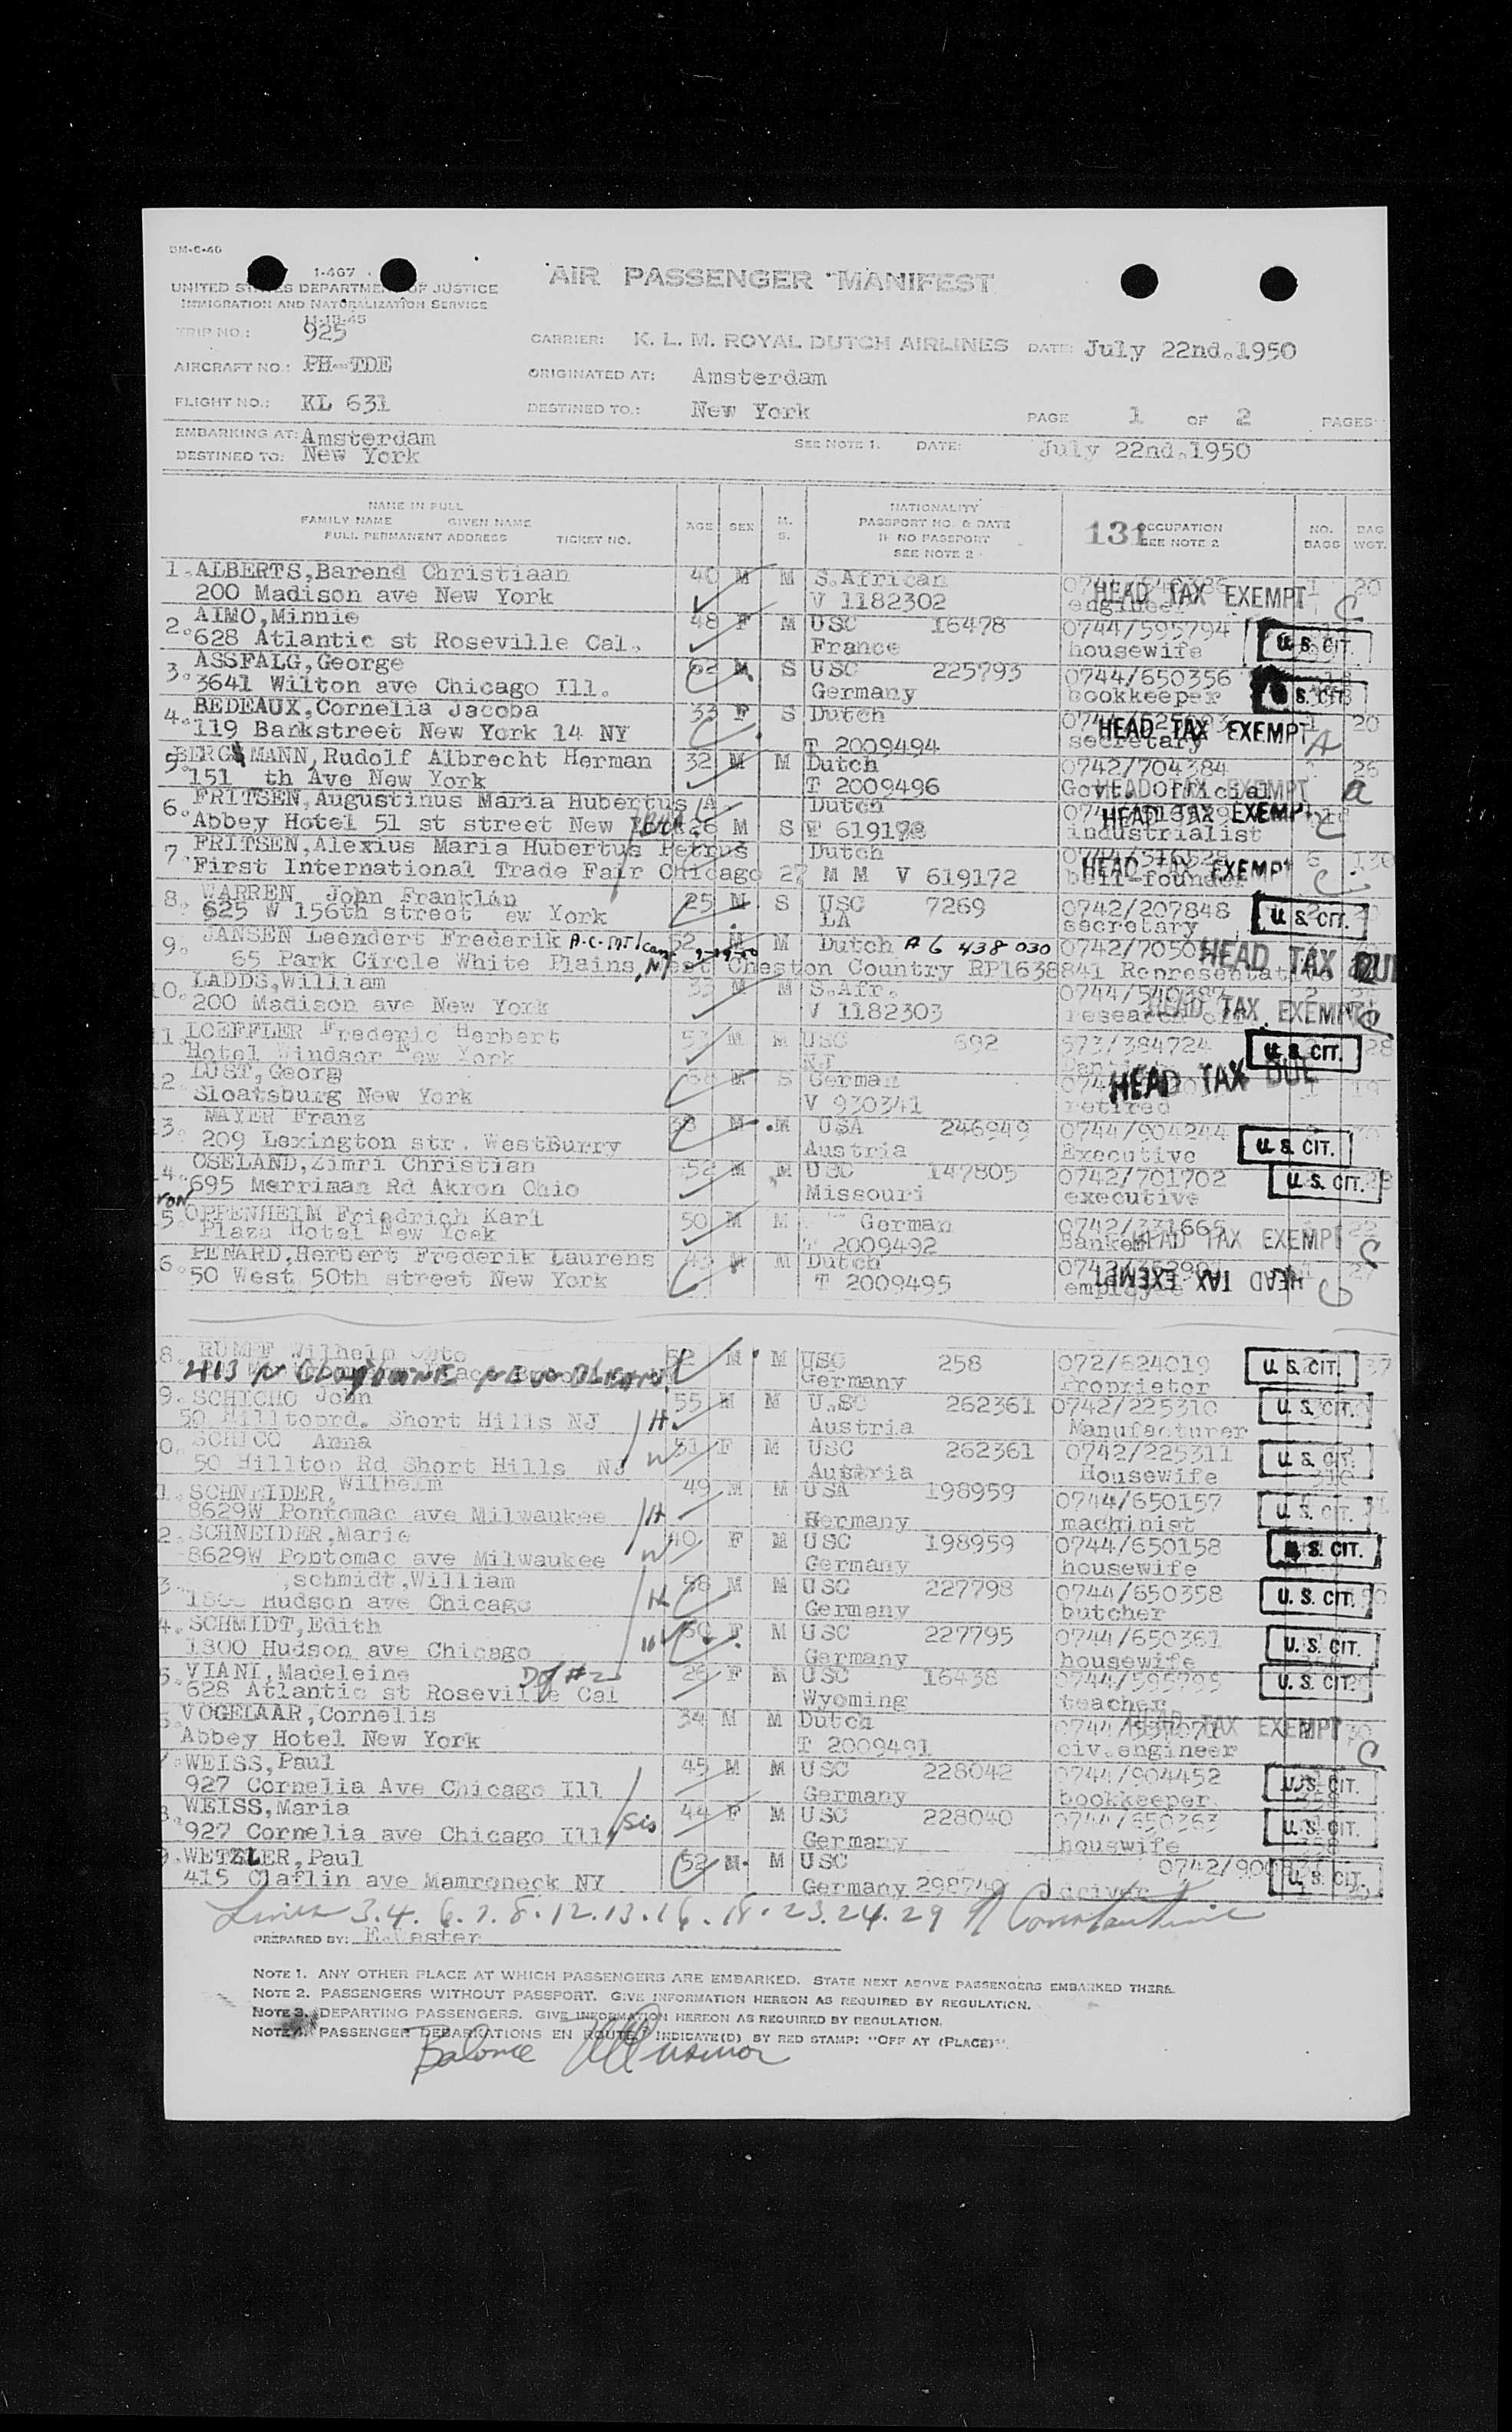 DM-C-40
1-467
UNITED STATES DEPARTMENT OF JUSTICE
IMMIGRATION AND NATURALIZATION SERVICE
11-111-45
AIR PASSENGER MANIFEST
TRIP NO.: 925
CARRIER: K. L. M. ROYAL DUTCH AIRLINES DATE: July 22nd.1950
AIRCRAFT NO.: PH-TDE
ORIGINATED AT: Amsterdam
FLIGHT NO.: KL 631
DESTINED TO.: New York
PAGE 1 OF 2 PAGES
EMBARKING AT: Amsterdam
SEE NOTE 1. DATE: July 22nd.1950
DESTINED TO: New York
NAME IN FULL
FAMILY NAME GIVEN NAME
FULL PERMANENT ADDRESS TICKET NO.
AGE SEX M. S.
NATIONALITY
PASSPORT NO. & DATE
IF NO PASSPORT
SEE NOTE 2
131 OCCUPATION
SEE NOTE 2
NO. BAGS
BAG WGT.
1. ALBERTS,Barend Christiaan 40 M M S.African HEAD TAX EXEMPT 1 20
200 Madison ave New York V 1182302 engineer C
2. AIMO,Minnie 48 F M USC 16478 0744/595794
628 Atlantic st Roseville Cal. France housewife U. S. CIT.
3. ASSFALG,George 62 M S USC 225793 0744/650356
3641 Wilton ave Chicago Ill. Germany bookkeeper S. CIT.
4. BEDEAUX,Cornelia Jacoba 33 F S Dutch HEAD TAX EXEMPT 1 20
119 Bankstreet New York 14 NY T 2009494 secretary A
5. BERGMANN,Rudolf Albrecht Herman 32 M M Dutch 0742/704384 26
151 th Ave New York T 2009496 Govt.Official HEAD TAX EXEMPT a
6. FRITSEN,Augustinus Maria Hubertus A Dutch HEAD TAX EXEMPT
Abbey Hotel 51 st street New York 26 M S industrialist C
7. FRITSEN,Alexius Maria Hubertus Petrus Dutch HEAD TAX EXEMPT 130
First International Trade Fair Chicago 27 M M V 619172 bell-founder C
8. WARREN John Franklin 25 M S USC 7269 0742/207848
625 W 156th street ew York LA secretary U. S. CIT.
9. JANSEN Leendert Frederik 52 M M Dutch A 6 438 030 HEAD TAX DUE
65 Park Circle White Plains, NY West Cheston Country RP1638841 Representative
10. LADDS,William 33 M M S.Afr.
200 Madison ave New York V 1182303 HEAD TAX EXEMPT C
11. LOEFFLER Frederic Herbert 53 M M USC 692 573/384724 28
Hotel Windsor New York NJ U. S. CIT.
2. LUST,Georg M S German HEAD TAX DUE
Sloatsburg New York V 930341 retired
3. MAYER Franz M M USA 246949 0744/904244
209 Lexington str. WestBurry Austria Executive U. S. CIT.
4. OSELAND,Zimri Christian 52 M M USC 147805 0742/701702
695 Merriman Rd Akron Ohio Missouri executive U. S. CIT.
von
5. OPPENHEIM Friedrich Karl 50 M M German 0742/331665 22
Plaza Hotel New Yoek T 2009492 Banker HEAD TAX EXEMPT C
6. PENARD,Herbert Frederik Laurens 43 M M Dutch
50 West 50th street New York T 2009495 employee HEAD TAX EXEMPT C
8. RUMPF Wilhelm Otto 52 M M USC 258 072/624019 37
413 N CLAYBORNE NEW ORLEANS Germany Proprietor U. S. CIT.
9. SCHICHO John 55 M M U.SC 262361 0742/225310
50 Hilltoprd. Short Hills NJ H Austria Manufacturer U. S. CIT.
0. SCHICO Anna 51 F M USC 262361 0742/225311
50 Hilltop Rd Short Hills NJ W Austria Housewife U. S. CIT.
1. SCHNEIDER, Wilhelm 49 M M USA 198959 0744/650157
8629W Pontomac ave Milwaukee H Germany machinist U. S. CIT.
2. SCHNEIDER,Marie 40 F M USC 198959 0744/650158
8629W Pobtomac ave Milwaukee W Germany housewife U. S. CIT.
3. ,schmidt,William 58 M M USC 227798 0744/650358
Hudson ave Chicago H Germany butcher U. S. CIT.
4. SCHMIDT,Edith 50 F M USC 227795 0744/650361
1800 Hudson ave Chicago W Germany housewife U. S. CIT.
5. VIANI,Madeleine D of #2 26 F M USC 16438 0744/595795
628 Atlantic st Roseville Cal Wyoming teacher U. S. CIT.
6. VOGELAAR,Cornelis 34 M M Dutch HEAD TAX EXEMPT 30
Abbey Hotel New York T 2009491 civ.engineer C
7. WEISS,Paul 45 M M USC 228042 0744/904452
927 Cornelia Ave Chicago Ill Germany bookkeeper U. S. CIT.
8. WEISS,Maria 44 F M USC 228040 0744/650363
927 Cornelia ave Chicago Ill Sis Germany houswife U. S. CIT.
9. WETZLER,Paul 52 M M USC
415 Claflin ave Mamroneck NY Germany 298740 driver U. S. CIT.
Lines 3.4. 6.7.8.12.13.16.18.23.24.29
PREPARED BY:
NOTE 1. ANY OTHER PLACE AT WHICH PASSENGERS ARE EMBARKED. STATE NEXT ABOVE PASSENGERS EMBARKED THERE.
NOTE 2. PASSENGERS WITHOUT PASSPORT. GIVE INFORMATION HEREON AS REQUIRED BY REGULATION.
NOTE 3. DEPARTING PASSENGERS. GIVE INFORMATION HEREON AS REQUIRED BY REGULATION.
NOTE 4. PASSENGER DEBARKATIONS EN ROUTE, INDICATE(D) BY RED STAMP: "OFF AT (PLACE)".
Balance